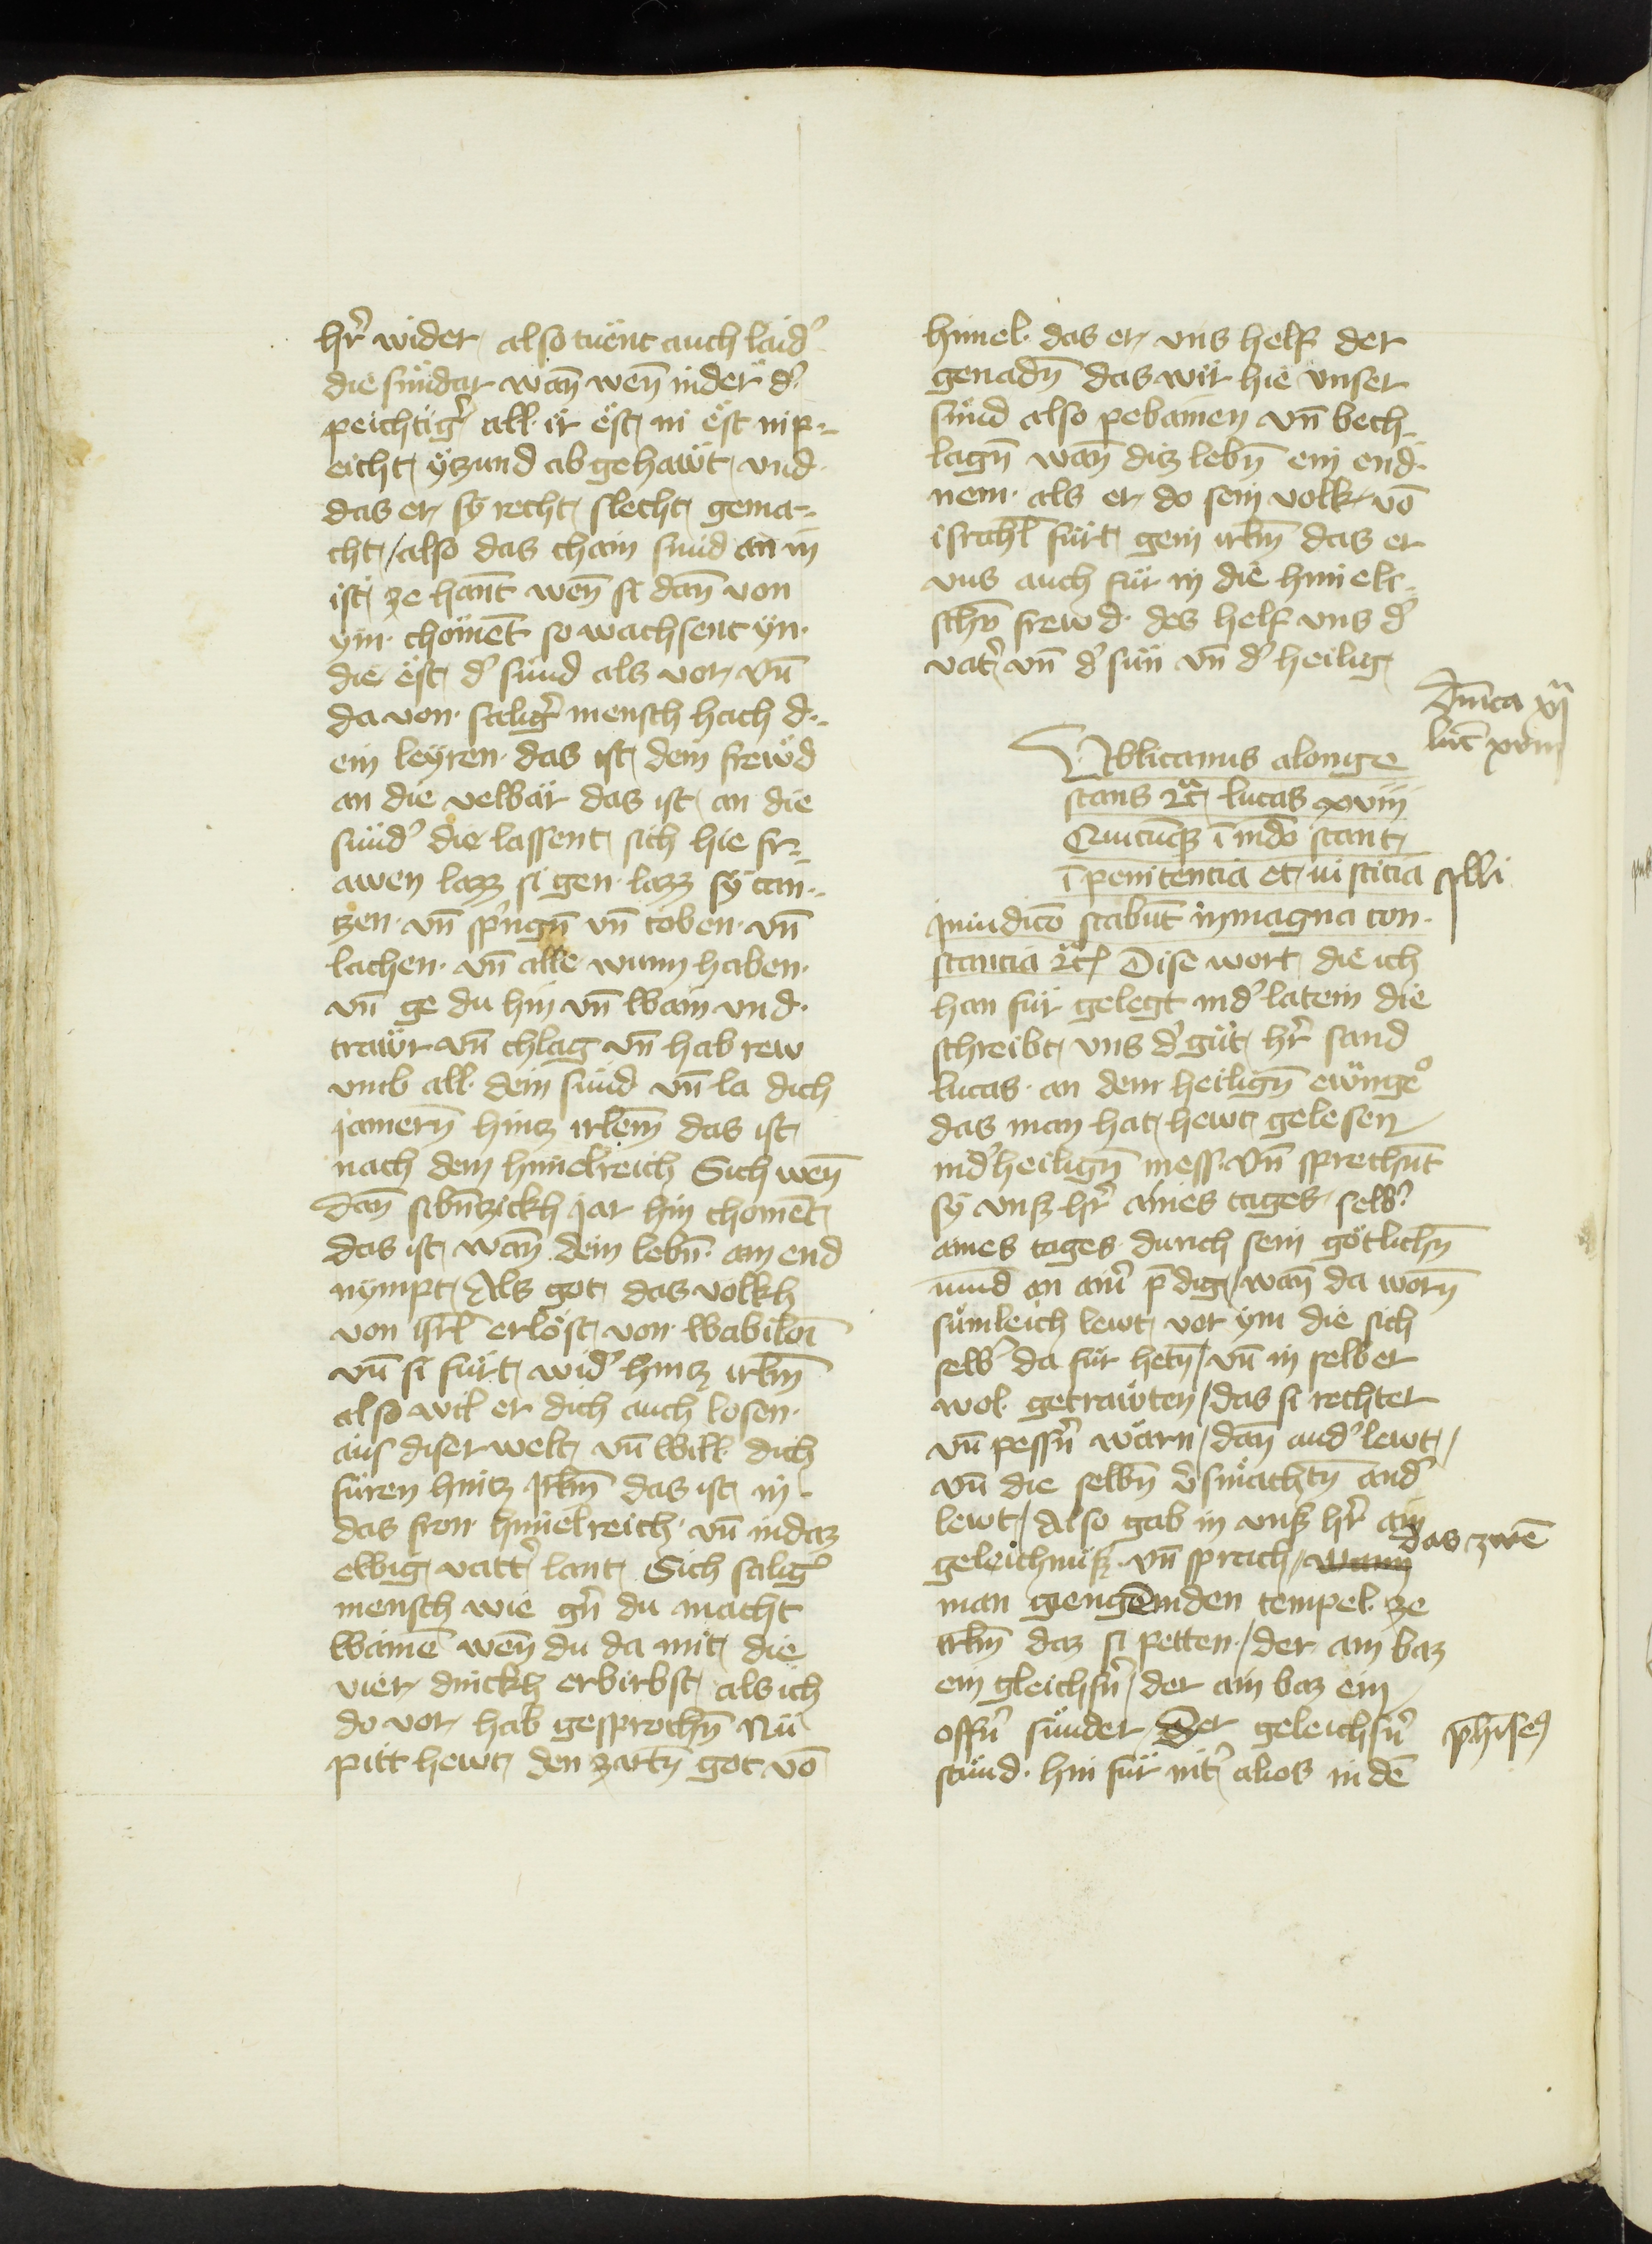 hr̄ wider also tuënt auch laid᾽
die sünder wan̄ wen̄ in der d᾽
peichtig᾽ all ir ëst in ëst nip-
eicht yczund ab gehawt vnd
das er sy recht slecht gema-
cht / also das chain sünd an in
ist ze hant wen̄ si dan̄ von
ym choment so wachsent yn
die ëst d᾽ sünd als vor vn̄
da von salig᾽ mensch hach d-
ein leyren das ist dein frewd
an die velbär das ist an die
sünd᾽ die lassent sich hie fr-
awen lazz si gen lazz sy tan-
czen vn̄ spngn̄ vn̄ toben vn̄
lachen vn̄ alle wunn haben
vn̄ ge du hin vn̄ wain vnd
trawr vn̄ chlag vn̄ hab rew
vmb all dein sünd vn̄ la dich
jamern̄ hincz irlem̄ das ist
nach dem himelreich Sich wen̄
dan̄ sibn̄czickh jar hin choment
das ist wan̄ dein lebn̄ ain end
nympt Als got das volkh
von isrl̄ erlöst von wabiloī
vn̄ si fürt wid᾽ hincz irlm̄
also wil er dich auch losen
aus diser welt vn̄ will dich
füren hincz Irlm̄ das ist in
das fron himelreich vn̄ in daz
ewig vatt᾽ lant Sich salig᾽
mensch wie gn̄ du macht
wainē wen̄ du da mit die
vier dinckh erbirbst als ich
do vor hab gesprochn̄ Nu
pitt hewt den zartn̄ got vō
himel das er vns helf der
genadn̄ das wir hie vnser
sünd also pebainen vn̄ bech-
lagn̄ wan̄ diz lebn̄ ein end
nem als er do sein volk vō
israhl̄ fürt gein irlm̄ das er
vns auch für in die himeli-
schn̄ frewd des helf vns d᾽
vat᾽ vn̄ d᾽ sün vn̄ d᾽ heilig
Dn̄ica xi
luc̄ xviii
Ublicanus alonge
stans 2c̄ lucas xviii
Quicūqꝫ ī mdō stant
ī penitencia et iusticia illi
In iudicō stabūt in magna con-
stancia 2c̄ Dise wort die ich
han für gelegt in d᾽ latein die
schreibt vns d᾽ güt hr̄ sand
lucas an dem heilign̄ ewange᾽
das man hat hewt gelesen
in d᾽ heilign̄ mess Vn̄ sprechn̄t
sy vnsz hr̄ aines tages selb᾽
aines tages durich sein götlichn̄
mund an ain᾽ p̄dig / wan̄ da worn̄
sümleich lewt vor ym die sich
selb᾽ da für hetn̄ / vn̄ in selber
wol getrawten / das si rechter
vn̄ pessn̄ wärn / dan̄ and᾽ lewt /
vn̄ die selbn̄ v᾽smachtn̄ and᾽
lewt / Also gab in vnsz hr̄ ain
geleichnüsz vn̄ sprach / wann das zwē
man giengē in den tempel ze
irlm̄ daz si petten / der ain baz
ein gleichsn̄ / der ain baz ein
offn̄ sünder Der geleichsn̄ ph̄iseꝰ
stünd hin für nit᾽ alios in dē